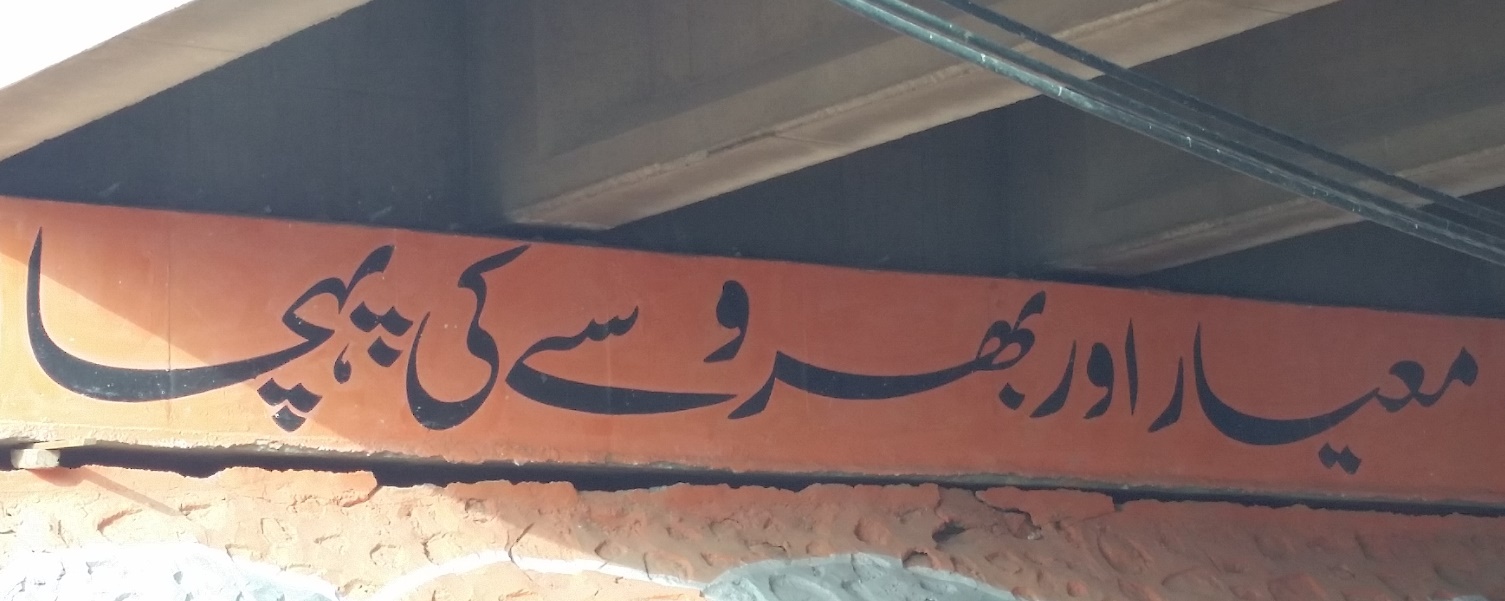 معیار اور بھروسے کی پہچا